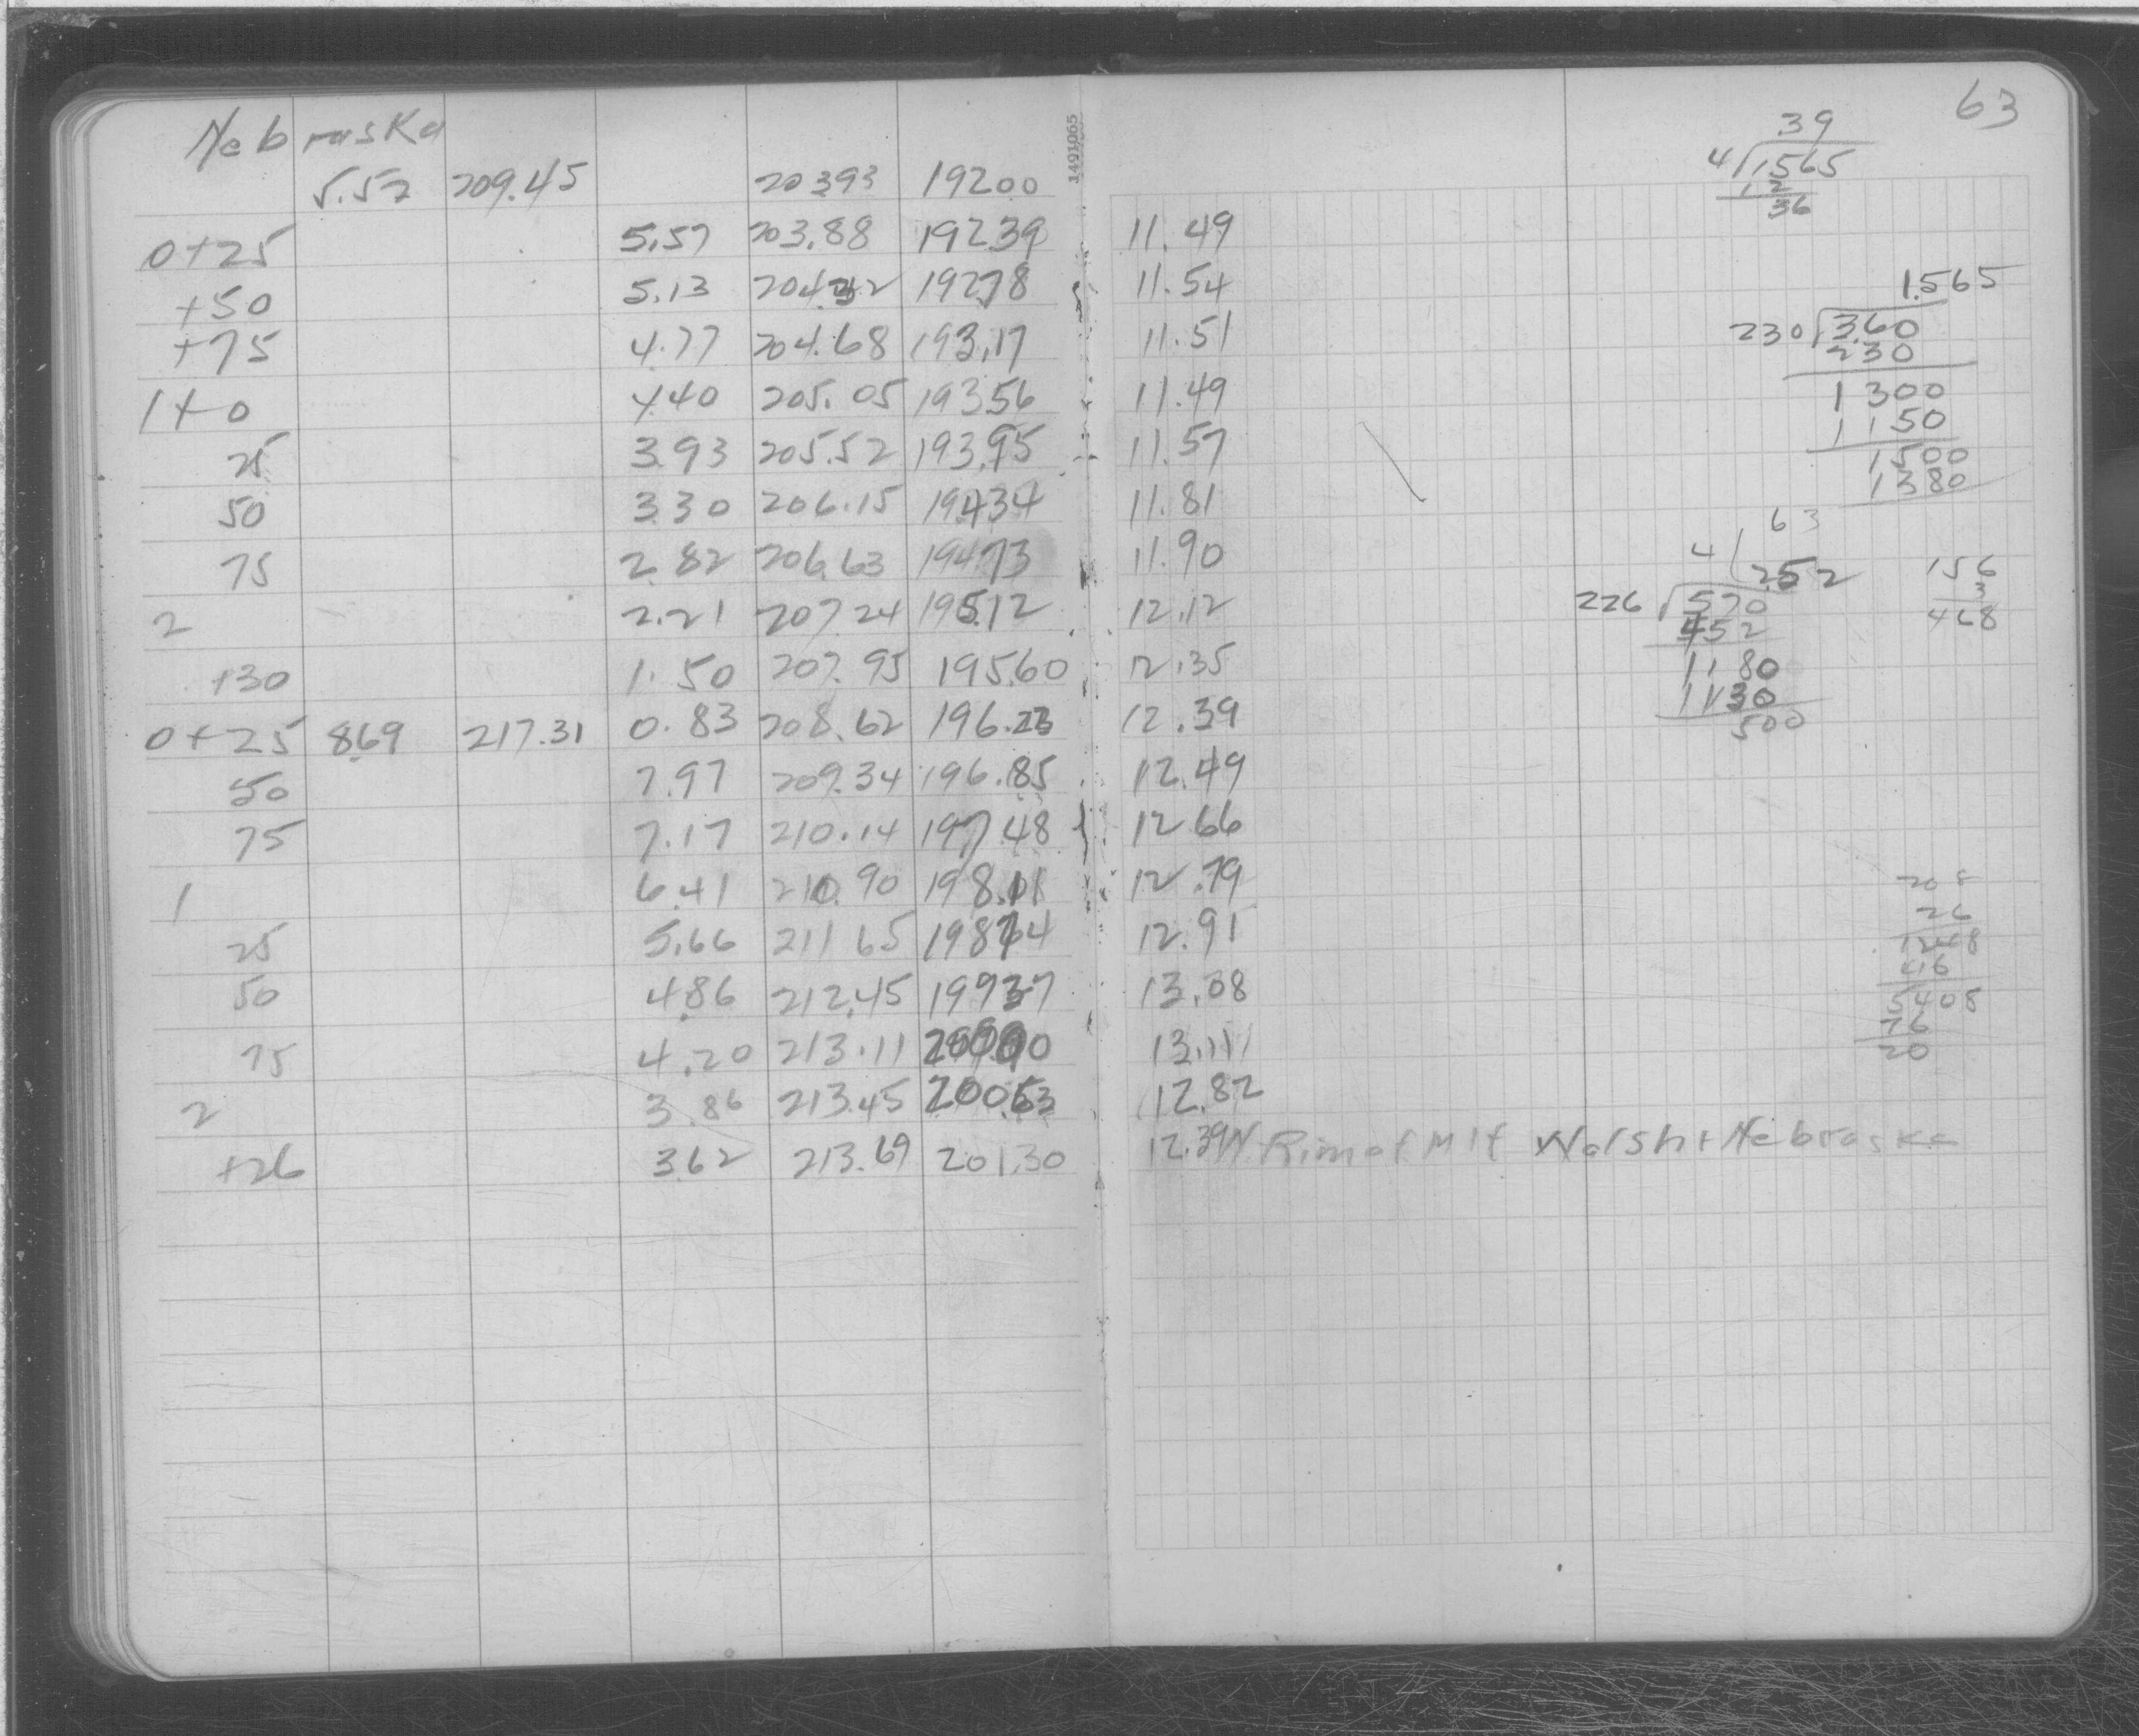 63
Nebraska
5.52 209.45 203.93 192.00
0+25 5.57 203.88 192.39 11.49
+50 5.13 204.32 192.78 11.54
+75 4.77 204.68 193.17 11.51
1+0 4.40 205.05 193.56 11.49
25 3.93 205.52 193.95 11.57
50 3.30 206.15 194.34 11.81
75 2.82 206.63 194.73 11.90
2 2.21 207.24 195.12 12.12
+30 1.50 207.95 195.60 12.35
0+25 8.69 217.31 0.83 208.62 196.23 12.39
50 7.97 209.34 196.85 12.49
75 7.17 210.14 197.48 12.66
1 6.41 210.90 198.11 12.79
25 5.66 211.65 198.74 12.91
50 4.86 212.45 199.37 13.08
75 4.20 213.11 200.00 13.11
2 3.86 213.45 200.63 12.82
+26 3.62 213.69 201.30 12.39 N. Rim of M H Walsh + Nebraska
1491065
.39
4 1.565
1 2
36
1.565
230 3.60
230
1300
1150
1500
1380
63
4 2.52
226 570
452
1180
1130
500
156
3
468
208
26
1248
416
5408
76
20